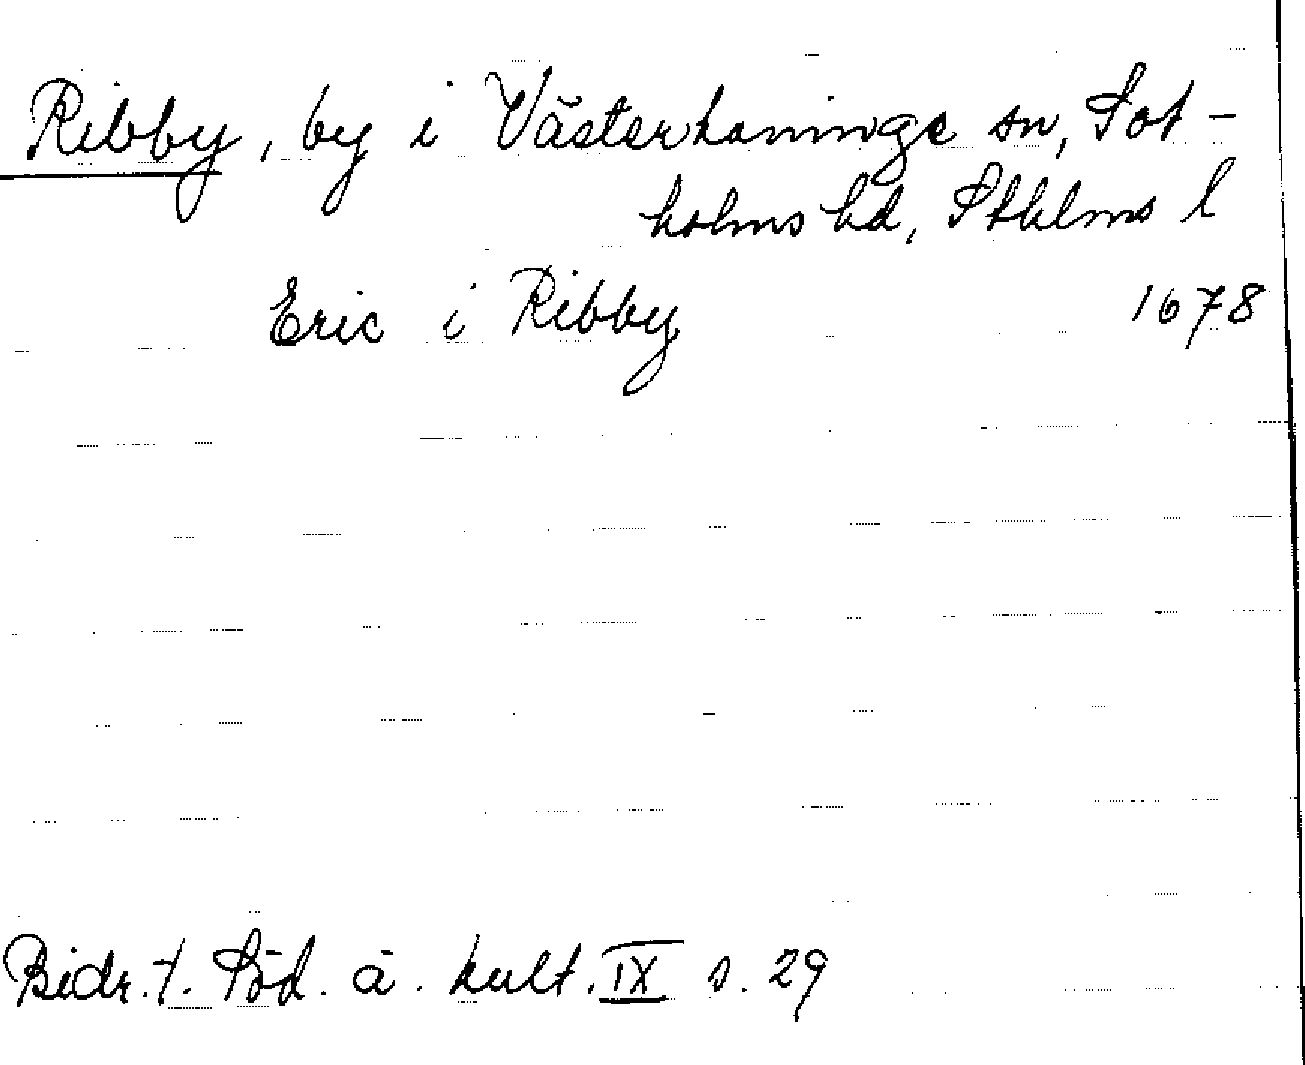 Ribby, by i Västerhaninge sn, Sot-
holms hd, Sthlms l
Eric i Ribby 1678
Bidr. t. Söd. ä. kult. IX s. 29